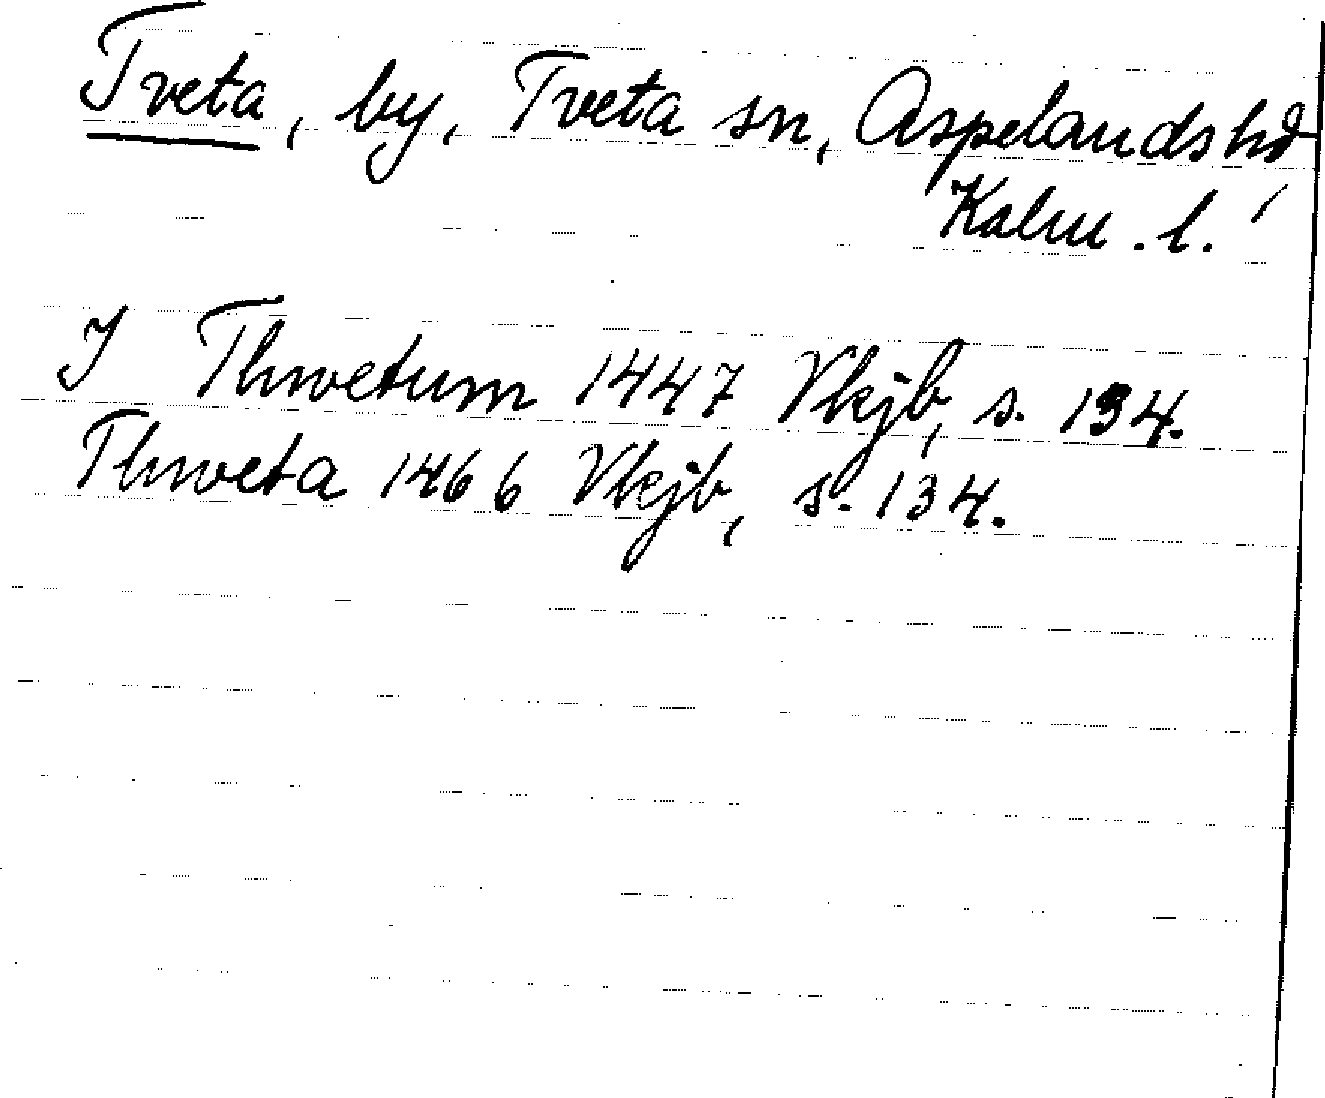 Tveta, by, Tveta sn, Aspelands hd,
Kalm. l.
I Thwetum 1447 Vkjb, s. 134.
Thweta 1466 Vkjb, s. 134.